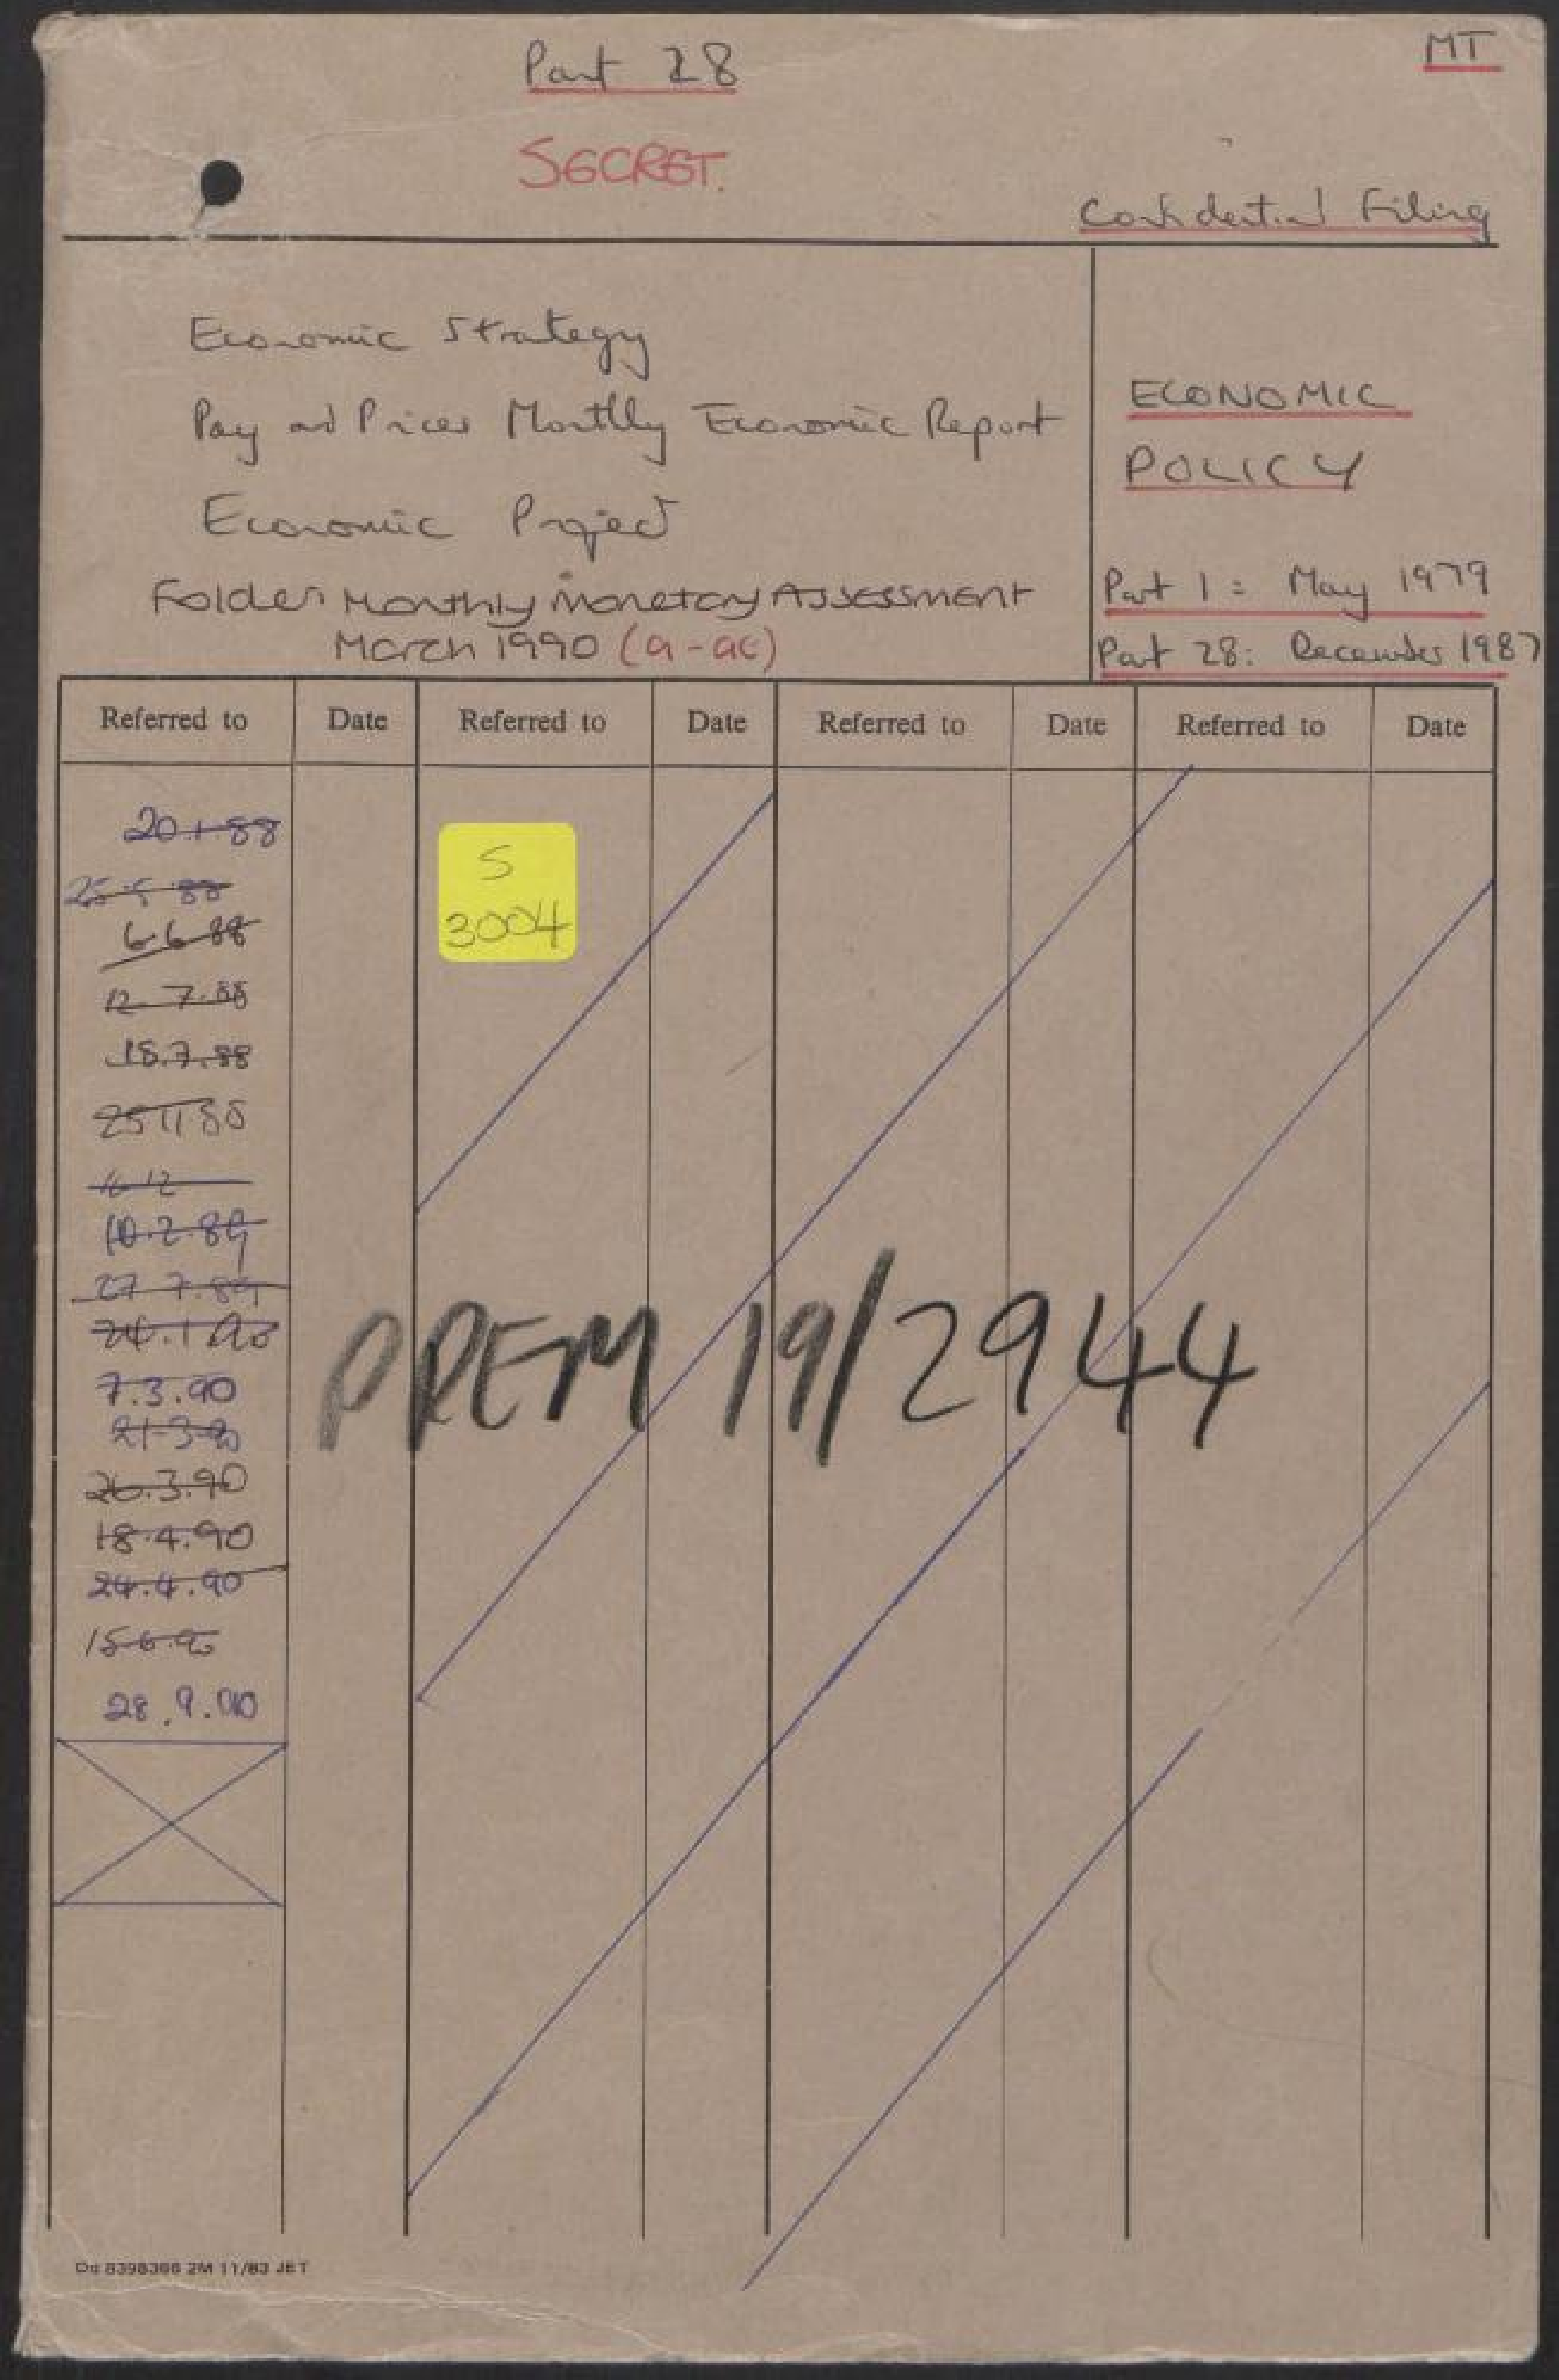 Part 28
MT
SECRET.
Confidential Filing
Economic Strategy
Pay and Prices Monthly Economic Report
Economic Project
Folder: Monthly Monetary Assessment
March 1990 (a-ae)
ECONOMIC
POLICY
Part 1: May 1979
Part 28: December 1987
Referred to Date Referred to Date Referred to Date Referred to Date
20.1.88
25.5.88
6.6.88
12.7.88
18.7.88
25 11 88
16 12
10.2.89
27.7.89
24.1.90
7.3.90
21.3.90
26.3.90
18.4.90
24.4.90
15.6.90
28.9.90
S
3004
PREM 19/2944
Dd 8398366 2M 11/83 JET